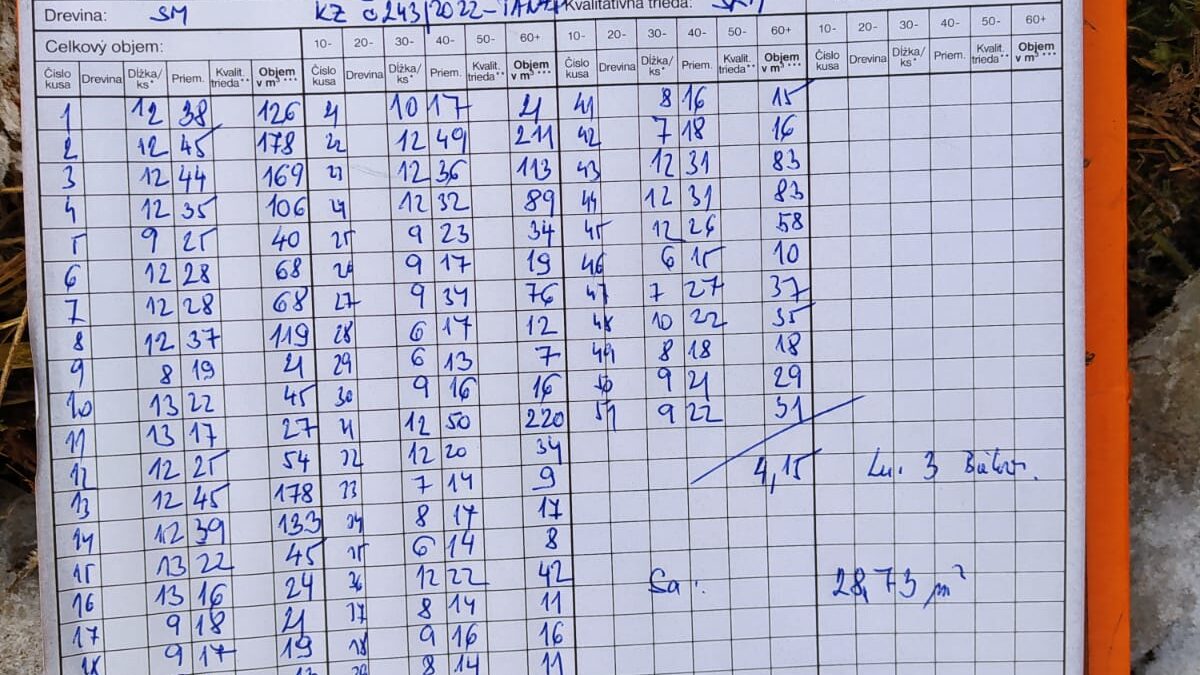 Drevina: SM KZ č 243/2022-TANAP Kvalitatívna trieda:
Celkový objem: 10- 20- 30- 40- 50- 60+ 10- 20- 30- 40- 50- 60+ 10- 20- 30- 40- 50- 60+
Číslo kusa Drevina Dĺžka/ks* Priem. Kvalit. trieda** Objem v m³*** Číslo kusa Drevina Dĺžka/ks* Priem. Kvalit. trieda** Objem v m³*** Číslo kusa Drevina Dĺžka/ks* Priem. Kvalit. trieda** Objem v m³*** Číslo kusa Drevina Dĺžka/ks* Priem. Kvalit. trieda** Objem v m³***
1 12 38 126 21 10 17 21 41 8 16 15
2 12 45 178 22 12 49 211 42 7 18 16
3 12 44 169 23 12 36 113 43 12 31 83
4 12 35 106 24 12 32 89 44 12 31 83
5 9 25 40 25 9 23 34 45 12 26 58
6 12 28 68 26 9 17 19 46 6 15 10
7 12 28 68 27 9 34 76 47 7 27 37
8 12 37 119 28 6 17 12 48 10 22 35
9 8 19 21 29 6 13 7 49 8 18 18
10 13 22 45 30 9 16 16 50 9 21 29
11 13 17 27 31 12 50 220 51 9 22 31
12 12 25 54 32 12 20 34 4,15
13 12 45 178 33 7 14 9
14 12 39 133 34 8 17 17
15 13 22 45 35 6 14 8
16 13 16 24 36 12 22 42 Sa: 28,73 m³
17 9 18 21 37 8 14 11
18 9 17 19 38 9 16 16
39 8 14 11